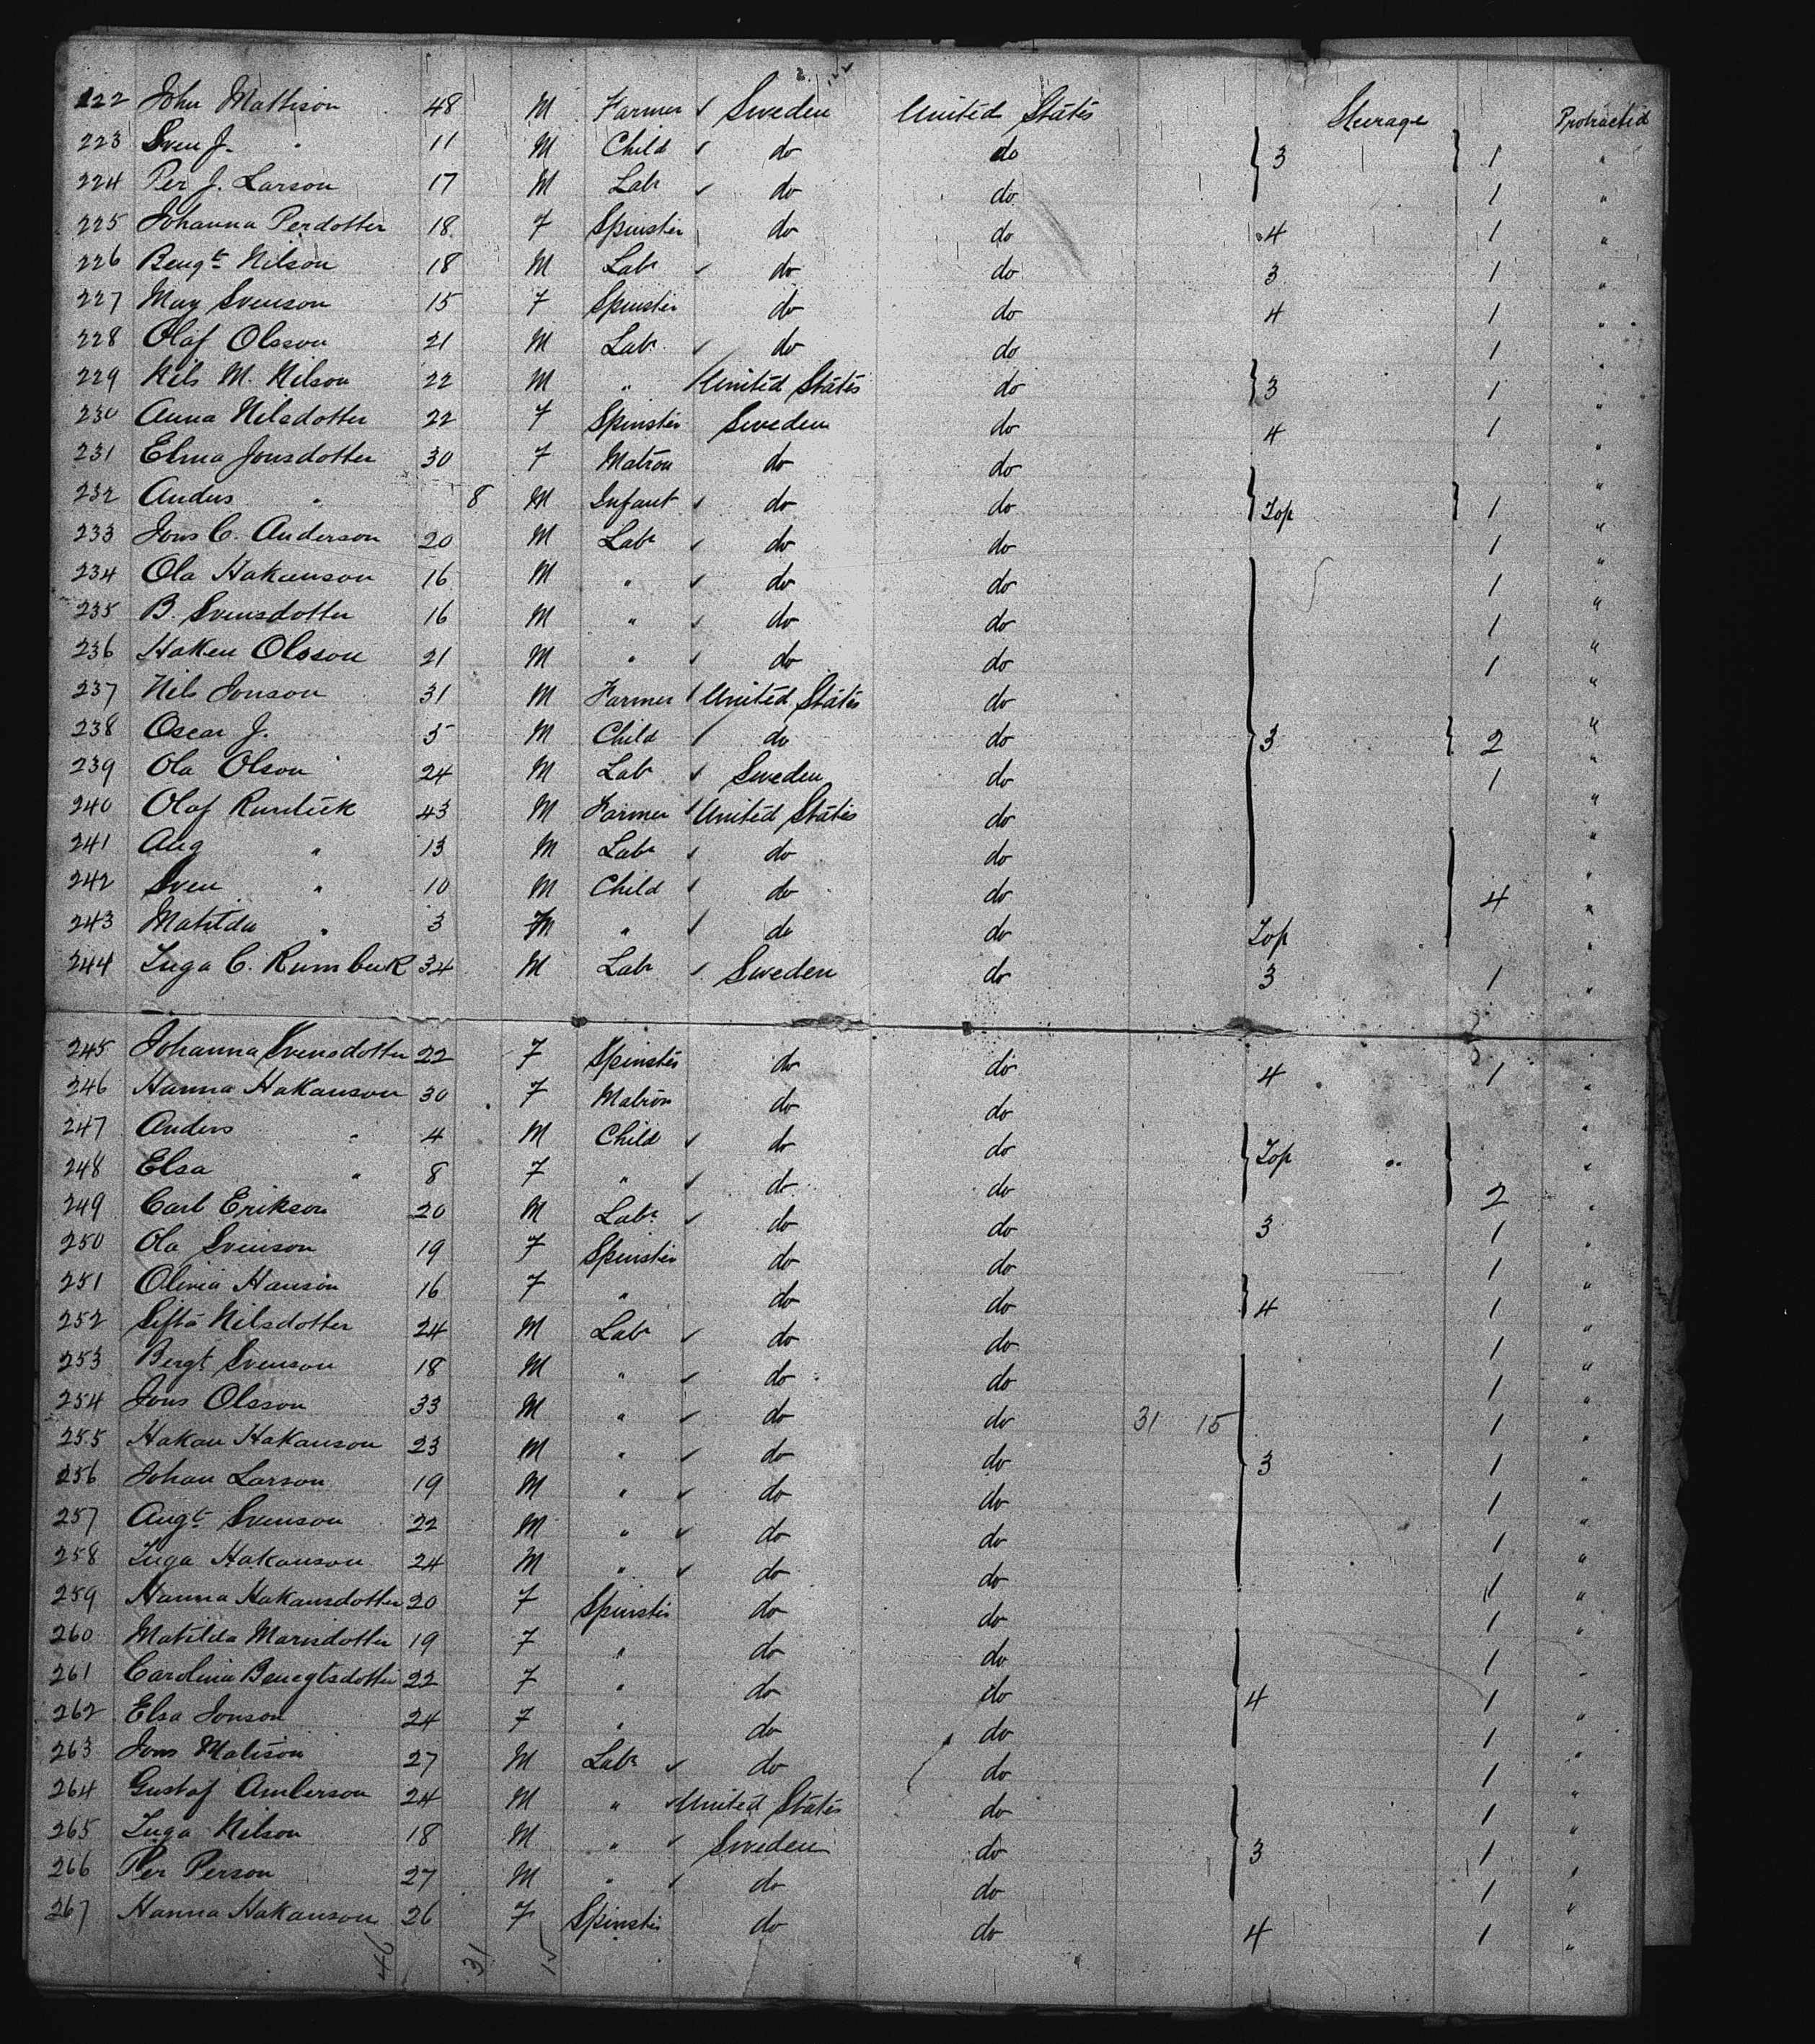 222 John Mattison 48 M Farmer ✓ Sweden United States Steerage Protracted
223 Sven J. " 11 M Child ✓ do do } 3 } 1 "
224 Per J. Larson 17 M Labr ✓ do do 1 "
225 Johanna Perdotter 18 F Spinster do do 4 1 "
226 Bengt Nilson 18 M Labr ✓ do do 3 1 "
227 May Svenson 15 F Spinster do do 4 1 "
228 Olaf Olsson 21 M Labr ✓ do do 1 "
229 Nils M. Nilson 22 M " ✓ United States do } 3 1 "
230 Anna Nilsdotter 22 F Spinster Sweden do 4 1 "
231 Elma Jonsdotter 30 F Matron do do "
232 Anders " 8 M Infant ✓ do do } Top } 1 "
233 Jons C. Anderson 20 M Labr ✓ do do 1 "
234 Ola Hakanson 16 M " ✓ do do 1 "
235 B. Svensdotter 16 M " ✓ do do 1 "
236 Haken Olsson 21 M " ✓ do do 1 "
237 Nils Jonson 31 M Farmer ✓ United States do "
238 Oscar J. " 5 M Child ✓ do do } 3 } 2 "
239 Ola Olson 24 M Labr ✓ Sweden do 1 "
240 Olaf 43 M Farmer ✓ United States do "
241 Aug " 13 M Labr ✓ do do "
242 Sven " 10 M Child ✓ do do } 4 "
243 Matilda " 3 F " ✓ do do Top "
244 Inga C. 34 M Labr ✓ Sweden do 3 1 "
245 Johanna Svensdotter 22 F Spinster do do 4 1 "
246 Hanna Hakanson 30 F Matron do do "
247 Anders " 4 M Child ✓ do do } Top } "
248 Elsa " 8 F " ✓ do do 2 "
249 Carl Erikson 20 M Labr ✓ do do 3 1 "
250 Ola Svenson 19 F Spinster do do 1 "
251 Olivia Hanson 16 F " do do } 4 1 "
252 Sifta Nilsdotter 24 M Labr ✓ do do 1 "
253 Bergt Svenson 18 M " ✓ do do 1 "
254 Jons Olsson 33 M " ✓ do do 31 15 1 "
255 Hakan Hakanson 23 M " ✓ do do } 3 1 "
256 Johan Larson 19 M " ✓ do do 1 "
257 Augt Svenson 22 M " ✓ do do 1 "
258 Inga Hakanson 24 M " ✓ do do 1 "
259 Hanna Hakansdotter 20 F Spinster do do 1 "
260 Matilda Marisdotter 19 F " do do 1 "
261 Carolina Benegtsdotter 22 F " do do } 4 1 "
262 Elsa Jonson 24 F " do do 1 "
263 Jons Matison 27 M Labr ✓ do do 1 "
264 Gustaf Anderson 24 M " ✓ United States do 1 "
265 Inga Nilson 18 M " ✓ Sweden do } 3 1 "
266 Per Person 27 M " ✓ do do 1 "
267 Hanna Hakanson 26 F Spinster do do 4 1 "
46 31 15